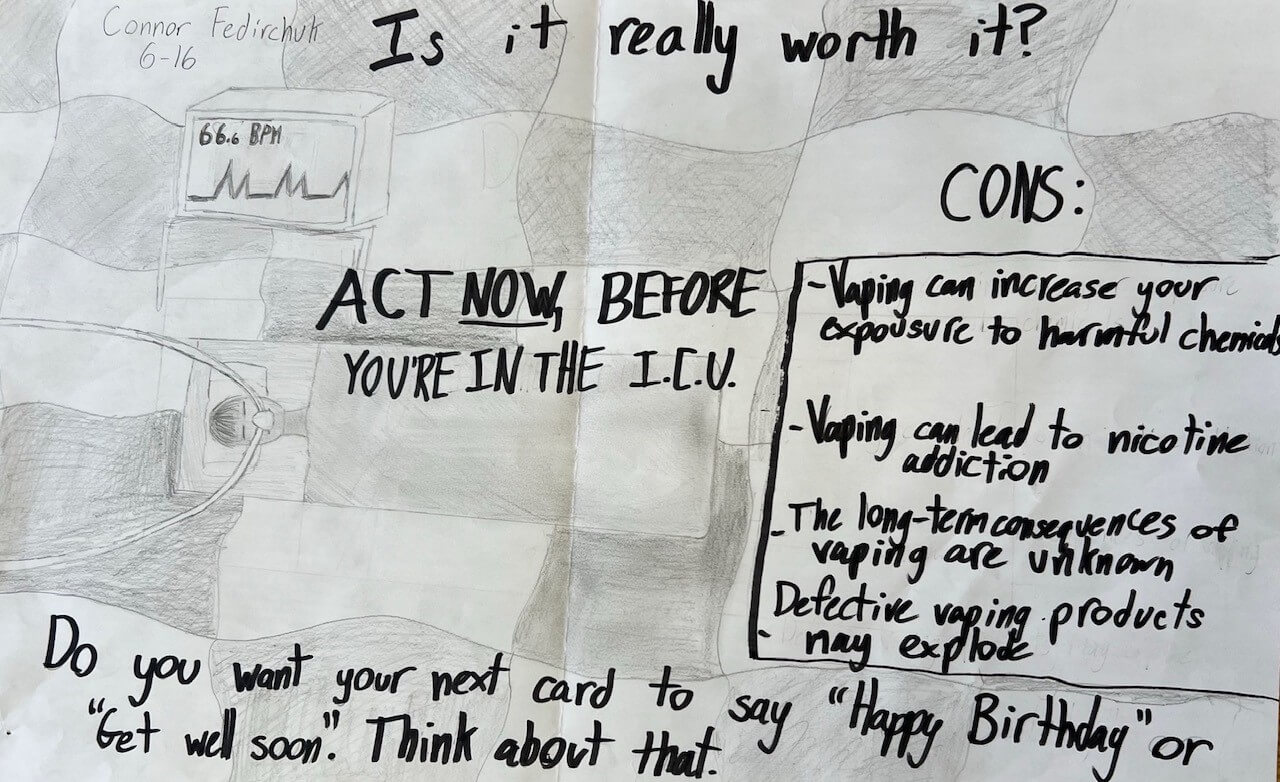 Connor Fedirchuk
6-16
Is it really worth it?
66.6 BPM
CONS:
ACT NOW, BEFORE
YOU'RE IN THE I.C.U.
-Vaping can increase your
expousure to harmful chemicals
-Vaping can lead to nicotine
addiction
-The long-term consequences of
vaping are unknown
Defective vaping products
- may explode
Do you want your next card to say "Happy Birthday" or
"Get well soon". Think about that.